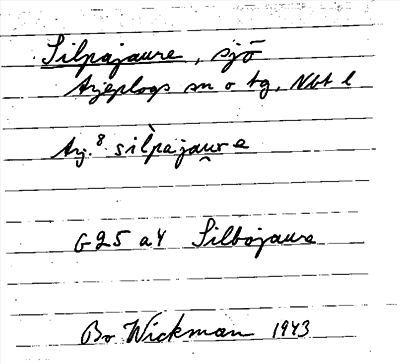 Silpajaure, sjö
Arjeplogs sn o tg, Nbt l
Arj. 8 sìlpajau̯rɐ
G25 a4 Silbojaure
Bo Wickman 1943